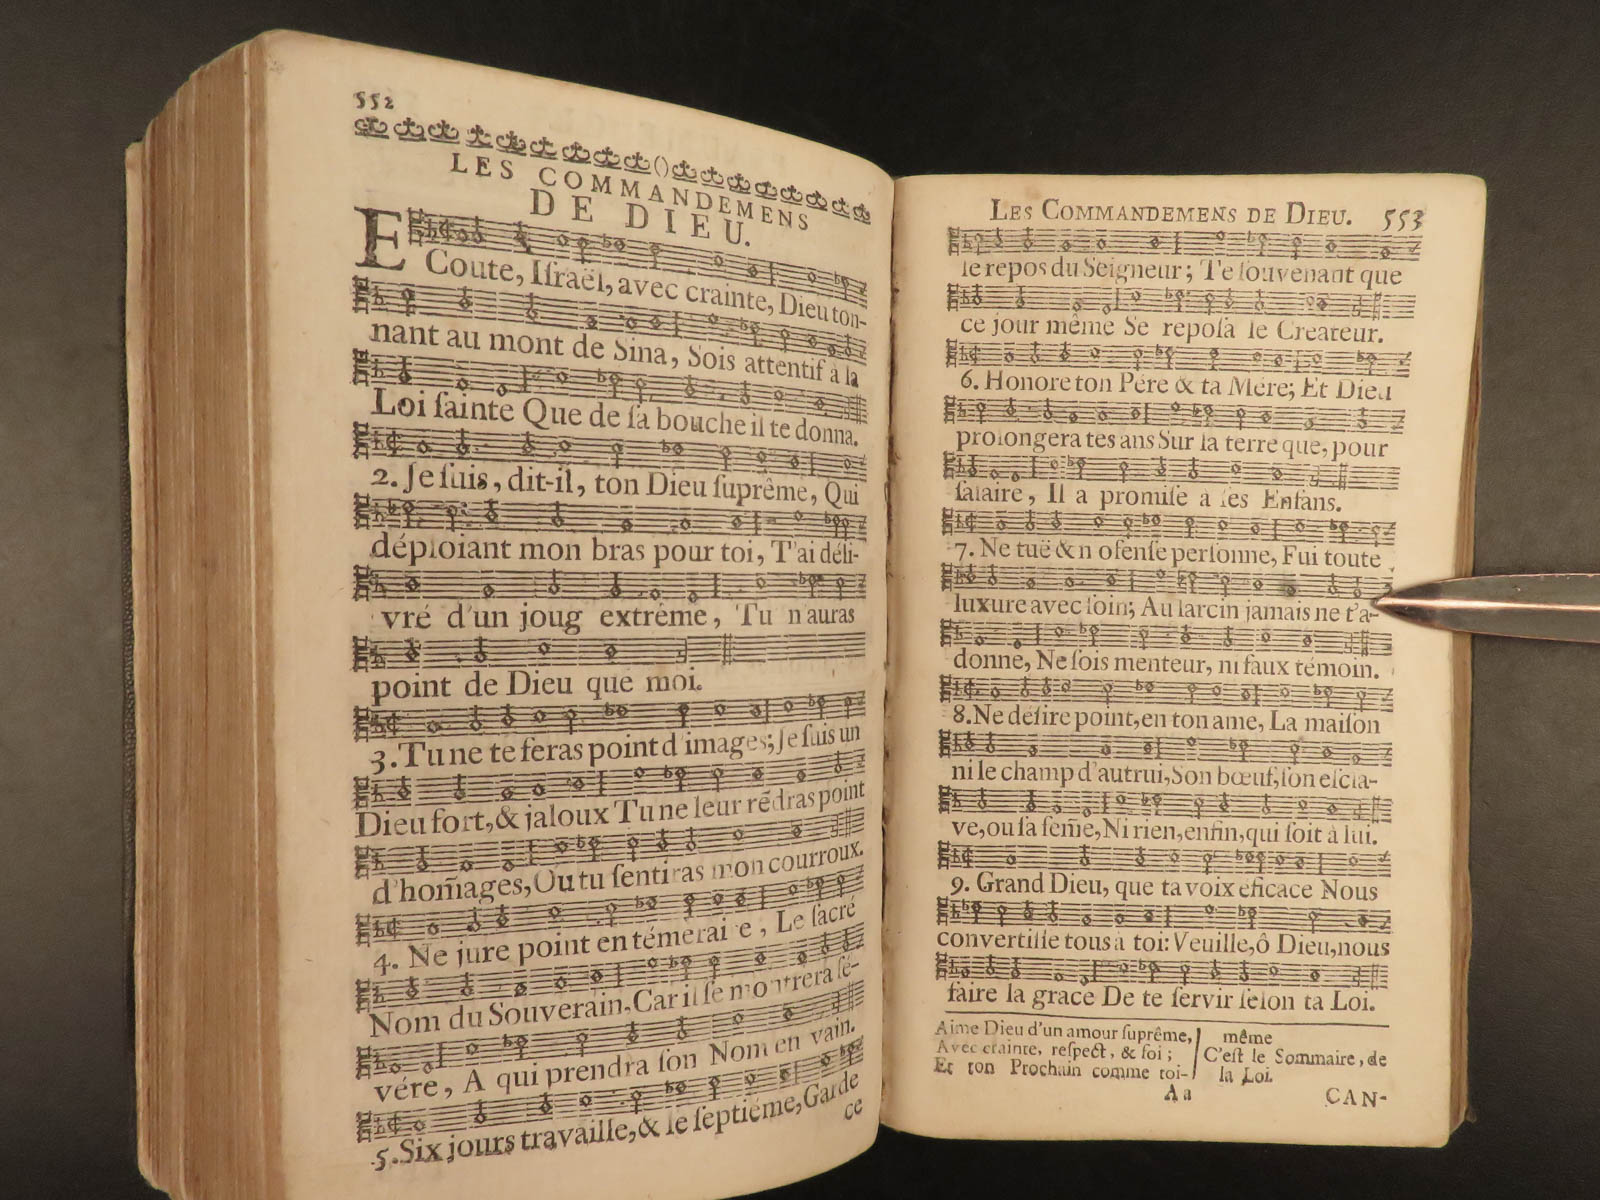 552
LES COMMANDEMENS
DE DIEU.
ECoute, Iſraël, avec crainte, Dieu ton-
nant au mont de Sina, Sois attentif à la
Loi ſainte Que de ſa bouche il te donna.
2. Je ſuis, dit-il, ton Dieu ſuprême, Qui
déploiant mon bras pour toi, T'ai déli-
vré d'un joug extrême, Tu n'auras
point de Dieu que moi.
3. Tu ne te feras point d'images; Je ſuis un
Dieu fort, & jaloux Tu ne leur rēdras point
d'hom̃ages, Ou tu ſentiras mon courroux.
4. Ne jure point en téméraire, Le ſacré
Nom du Souverain, Car il ſe montrera ſé-
vére, A qui prendra ſon Nom en vain.
5. Six jours travaille, & le ſeptiéme, Garde
ce
LES COMMANDEMENS DE DIEU. 553
le repos du Seigneur; Te ſouvenant que
ce jour même Se repoſa le Createur.
6. Honore ton Pére & ta Mére; Et Dieu
prolongera tes ans Sur la terre que, pour
ſalaire, Il a promiſe a ſes Enfans.
7. Ne tuë & n'ofenſe perſonne, Fui toute
luxure avec ſoin; Au larcin jamais ne t'a-
donne, Ne ſois menteur, ni faux témoin.
8. Ne déſire point, en ton ame, La maiſon
ni le champ d'autrui, Son bœuf, ſon eſcla-
ve, ou ſa fem̃e, Ni rien, enfin, qui ſoit à lui.
9. Grand Dieu, que ta voix eficace Nous
convertiſſe tous à toi: Veuille, ô Dieu, nous
faire la grace De te ſervir ſelon ta Loi.
Aime Dieu d'un amour ſuprême,
Avec crainte, reſpect, & foi;
Et ton Prochain comme toi-
même
C'eſt le Sommaire, de
la Loi.
Aa
CAN-